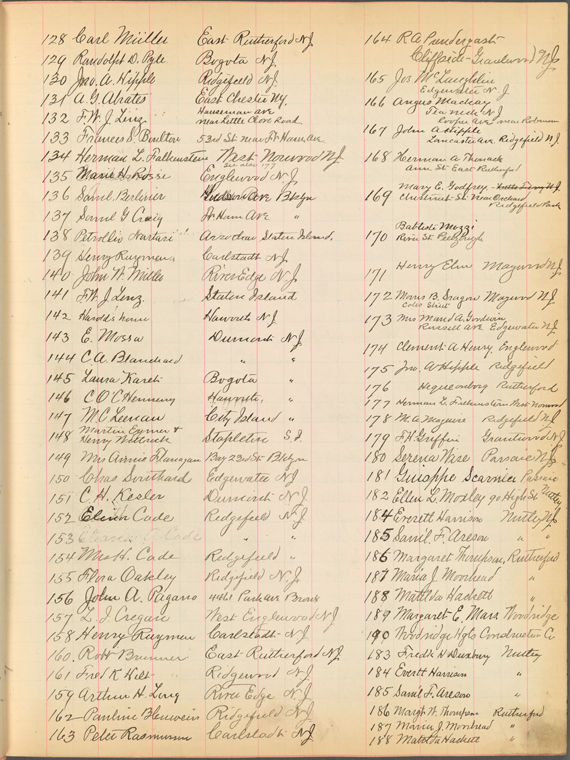 128 Carl Müller East Rutherford NJ.
129 Randolph D. Pyle Bogota NJ.
130 Jno. A. Hipple Ridgefield N.J.
131 A. G. Abrates East Chester NY.
132 F. W. J. Linz Hauseman ave
near Little Clove Road
133 Francis S. Bulten 53rd St near Ft. Ham. Ave
134 Herman L. Falkenstein West Norwood NJ.
see also 177
135 Marie H. Rosse Englewood N.J.
136 Saml. Berliner Hudson Ave Bklyn
137 Saml G Craig Ft Ham Ave "
138 Petrollio Arrochar Staten Island.
139 Henry Ruzyman Carlstadt N.J.
140 John W. Miller River Edge N.J.
141 F. W. J. Linz Staten Island
142 Harold's home Haworth N.J
143 E. Mossa Dumont N.J.
144 C. A. Blanchard " "
145 Laura Kareti Bogota "
146 C. O. C. Hennery Haworth, "
147 M. C. Lenean City Island "
Martin Eymer &
148 Henry Stapleton S.I.
149 Mrs Annie Flanagan Bay 23rd St. Bklyn
150 Chas Southard Edgewater N.J
151 C. H. Kesler Dumont N.J
152 Cade Ridgefield N.J.
153 Cade " "
154 Mrs H. Cade Ridgefield "
155 Flora Oakley Ridgefield N.J.
156 John A. Pagano 4461 Park ave Bronx
157 L. J. Cregan West Englewood NJ
158 Henry Ruzyman Carlstadt NJ.
160. Robt Brunner East Rutherford NJ.
161 Fred K Hilt Ridgewood N.J
159 Arthur H. Ling River Edge N.J
162 Pauline Blauvein Ridgefield N.J.
163 Peter Rasmussen Carlstadt N.J
164 R A Pundergast
Cliffside - Grantwood N.J.
165 Jos. McLaughlin
Edgewater N.J
166 Angus Mackay
Teaneck N.J
Cooper Ave near Robinson
167 John A Hipple
Lancaster Ave Ridgefield N.J.
168 Herman A Thomack
Ann St. East Rutherford
Mary E. Godfrey.
169 Chestnut St near Orchard
Ridgefield Park
Battista Mozzi
170 River St.
171 Henry Elm Maywood N.J.
172 Morris B. Dragon Maywood N.J
Coles Street
173 Mrs Maud A. Goodwin,
Russell ave Edgewater N.J.
174 Clement A. Henry, Englewood
175 Jno. A Hipple Ridgefield
176 Hequembourg Rutherford
177 Herman L. Falkenstein West Norwood
178 M. A. Maguire Ridgefield N.J
179 F. H. Griffin Grantwood N.J.
180 Serena Wise Passaic N.J.
181 Guisoppe Scarnici Passaic
182 Ellen L. Mosley 90 High St Nutley
184 Everett Harrison Nutley N.J.
185 Saml. F. Areson " "
186 Margaret Thompson, Rutherford
187 Maria J. Moorhead "
188 Matilda Hackett "
189 Margaret E. Marr Woodridge
190 Woodridge Hgts Construction Co
183 Fredk H Duxbury Nutley
184 Everett Harrison "
185 Saml. F. Areson "
186 Margt W. Thompson Rutherford
187 Maria J. Moorhead "
188 Matilda Hackett "